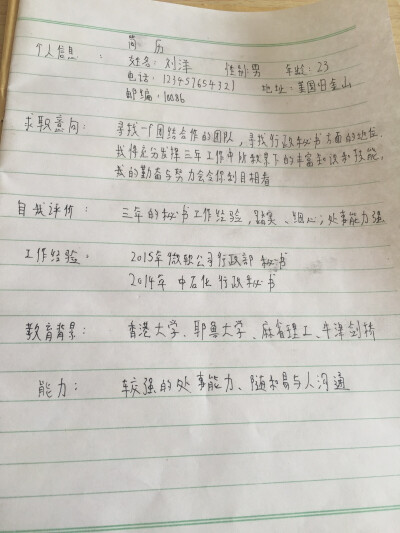 简 历
个人信息： 姓名：刘洋 性别：男 年龄：23
电话：123457654321 地址：美国旧金山
邮编：10086
求职意向： 寻找一个团结合作的团队，寻找行政秘书方面的地位。
我将充分发挥三年工作中所积累下的丰富知识和技能，
我的勤奋与努力会令你刮目相看
自我评价： 三年的秘书工作经验，踏实、细心；处事能力强
工作经验： 2015年微软公司行政部 秘书
2014年 中石化 行政秘书
教育背景： 香港大学、耶鲁大学、麻省理工、牛津剑桥
能力： 较强的处事能力、随和易与人沟通